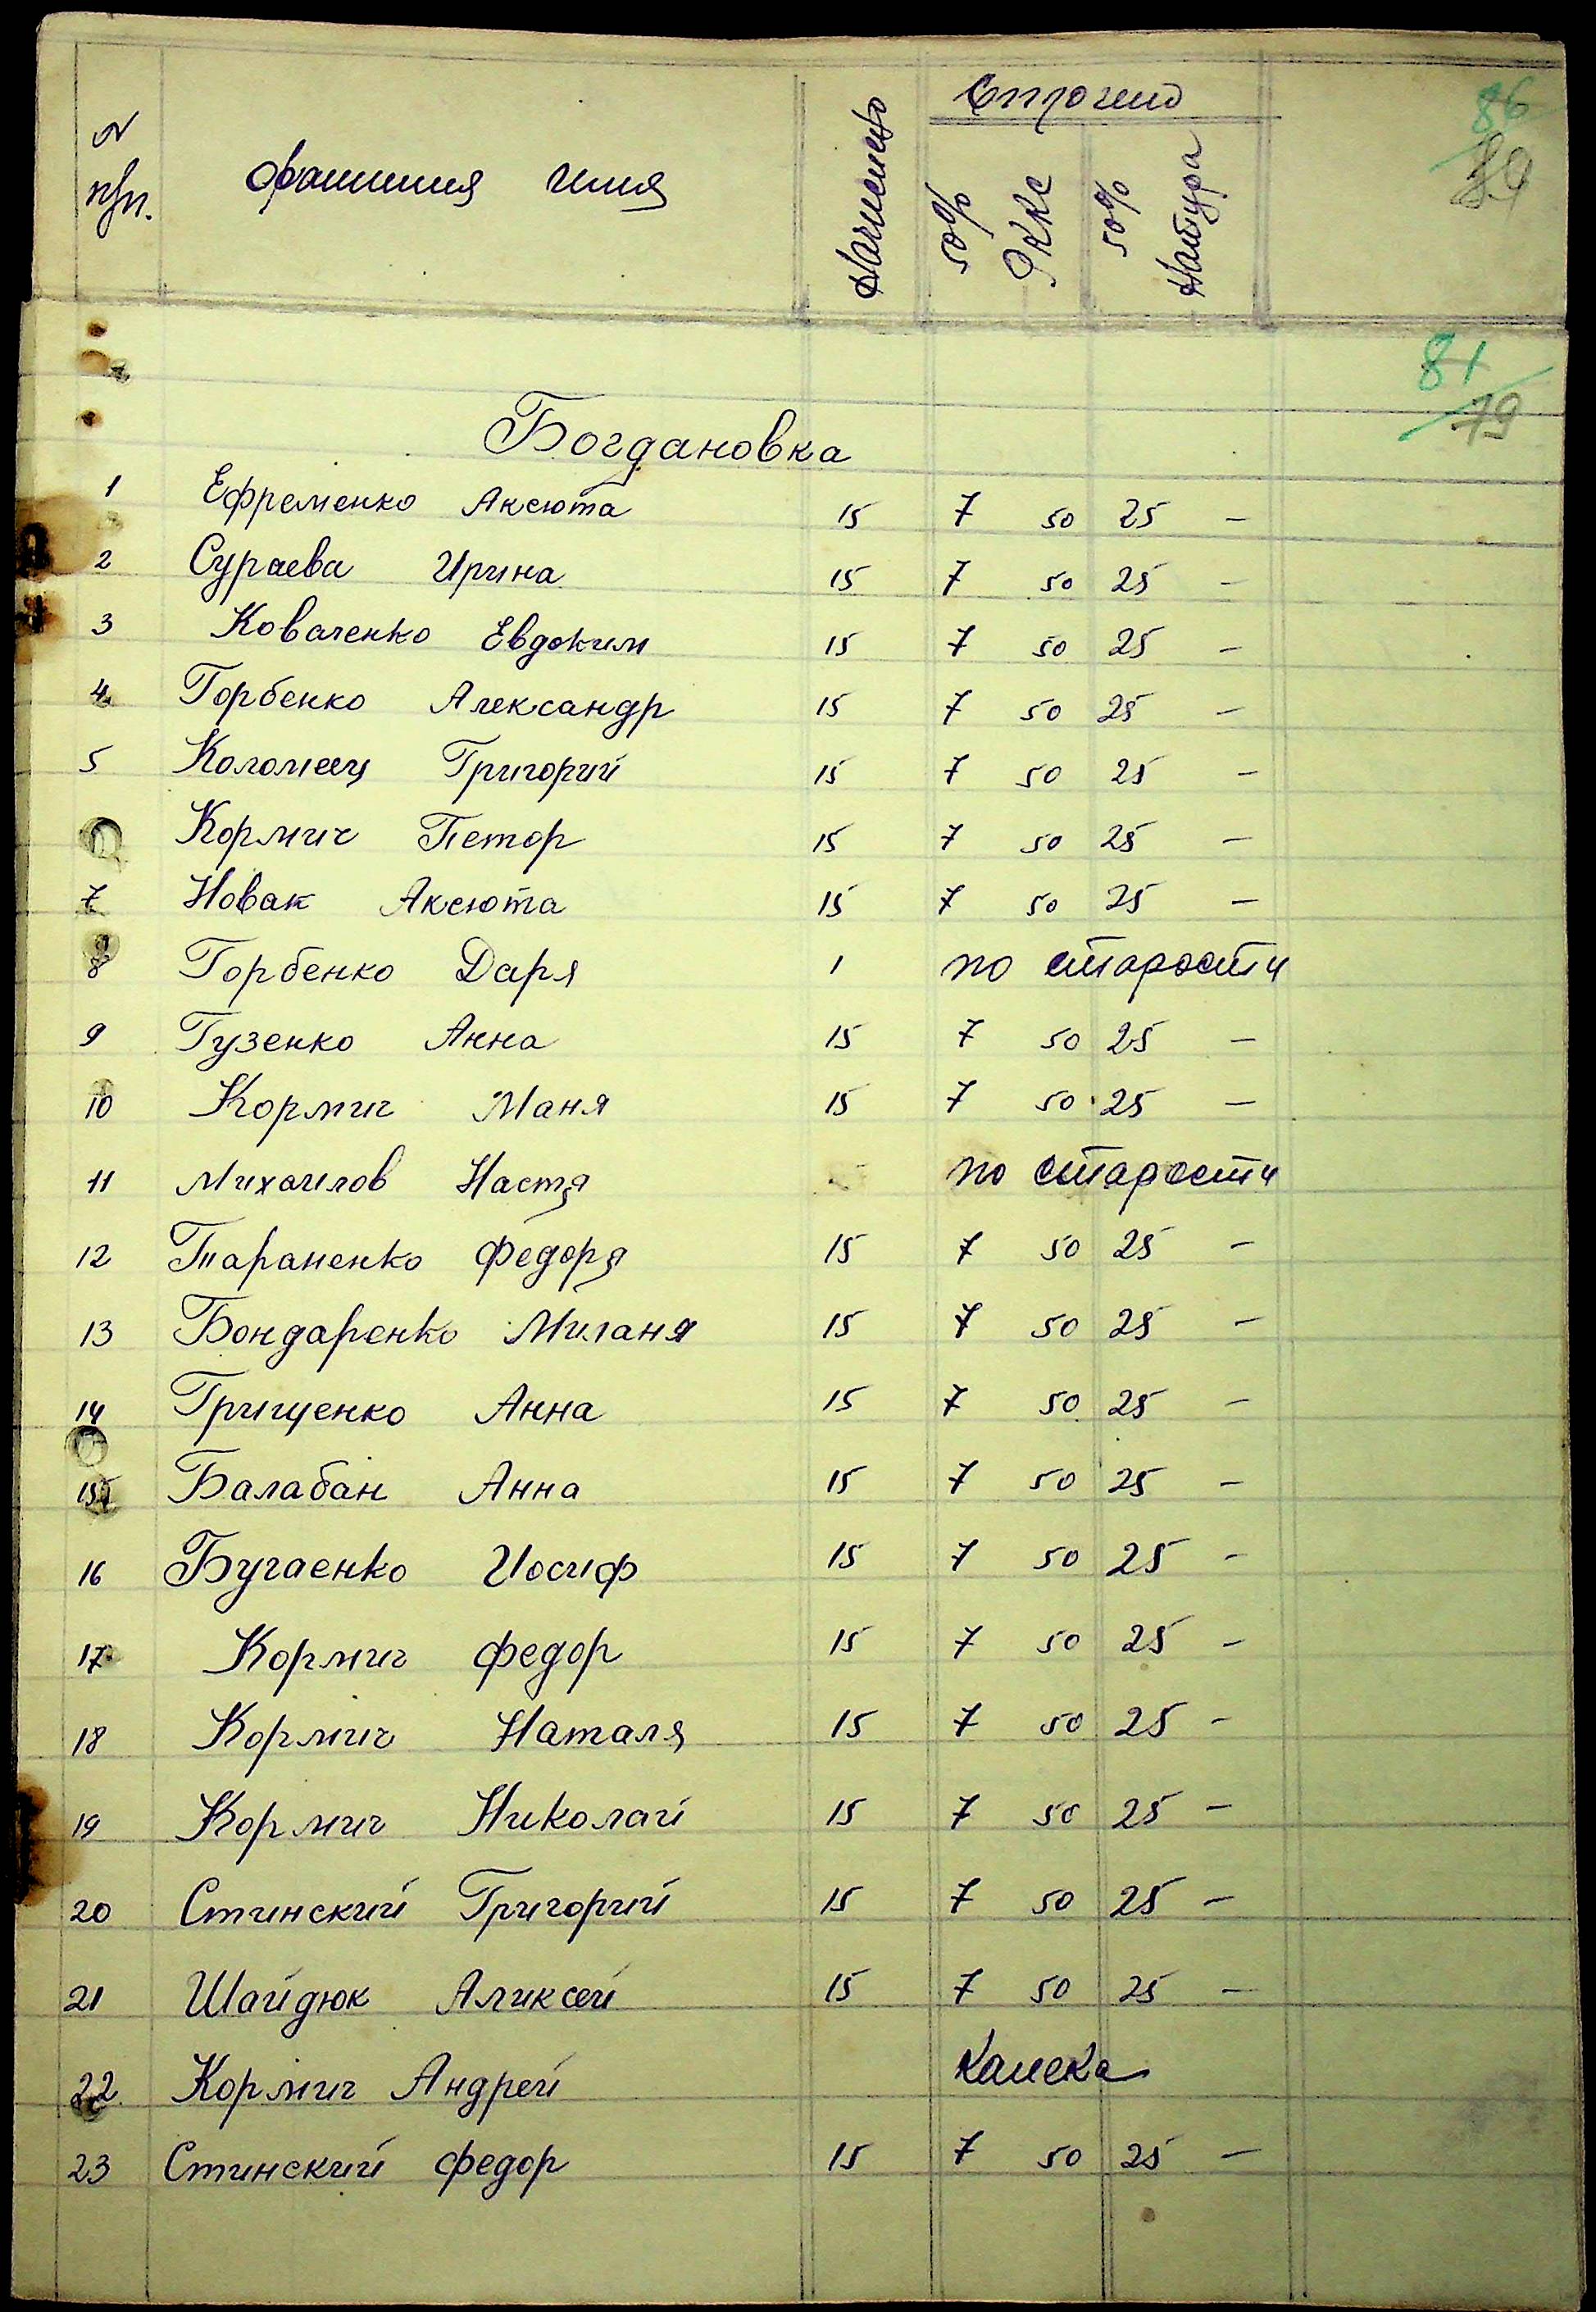 N п/п. Фамилия имя Начислено Строчено 50% РККС 50% Натура
86
81
79
Богдановка
1 Ефременко Аксюта 15 7 50 25 –
2 Сураева Ирина 15 7 50 25 –
3 Коваленко Евдоким 15 7 50 25 –
4 Горбенко Александр 15 7 50 25 –
5 Коломеец Григорий 15 7 50 25 –
Кормич Петор 15 7 50 25 –
7 Новак Аксюта 15 7 50 25 –
8 Горбенко Даря 1 по старости
9 Гузенко Анна 15 7 50 25 –
10 Кормич Маня 15 7 50 25 –
11 Михаилов Настя по старости
12 Тараненко Федоря 15 7 50 25 –
13 Бондаренко Миланя 15 7 50 25 –
14 Грищенко Анна 15 7 50 25 –
15 Балабан Анна 15 7 50 25 –
16 Бугаенко Иосиф 15 7 50 25 –
17 Кормич Федор 15 7 50 25 –
18 Кормич Наталя 15 7 50 25 –
19 Кормич Николай 15 7 50 25 –
20 Стинский Григорий 15 7 50 25 –
21 Шайдюк Аликсей 15 7 50 25 –
22 Кормич Андрей Калека
23 Стинский Федор 15 7 50 25 –